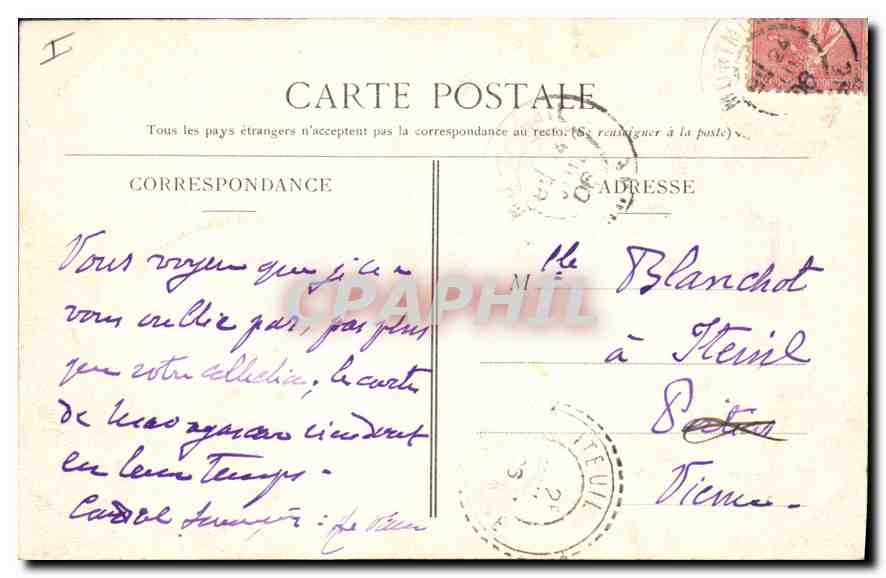 I
CARTE POSTALE
Tous les pays étrangers n'acceptent pas la correspondance au recto. (Se renseigner à la poste)
CORRESPONDANCE
ADRESSE
Vous voyez que je ne
vous oublie pas, pas plus
que votre collection, les cartes
de Madagascar viendront
en leur temps -
Cordial souvenir :
Mlle Blanchot
à Iteuil
Poitiers
Vienne -
ITEUIL
24
08
CPAPHIL